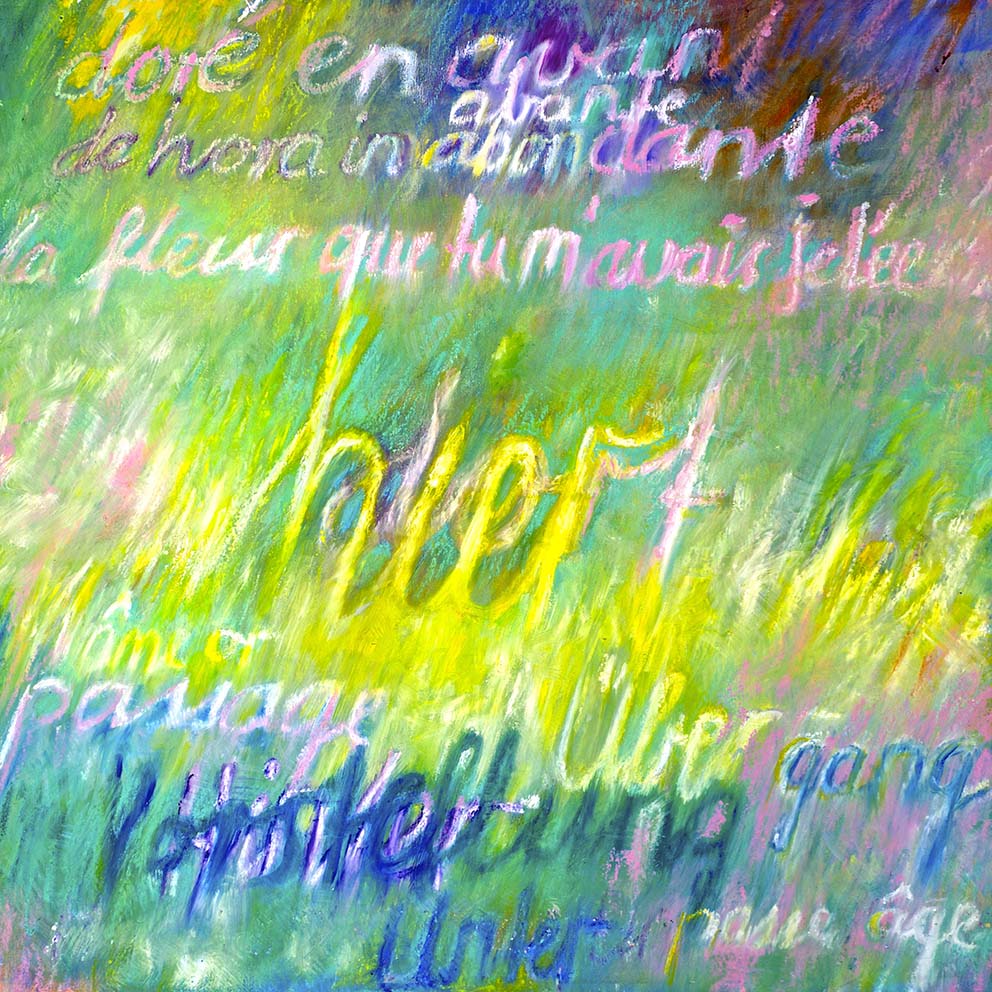 doré en avant
avante
dehora in abondante
la fleur que tu m'avais jetée
hiert
âme or
passage Über gang
Hister
Unter passe âge